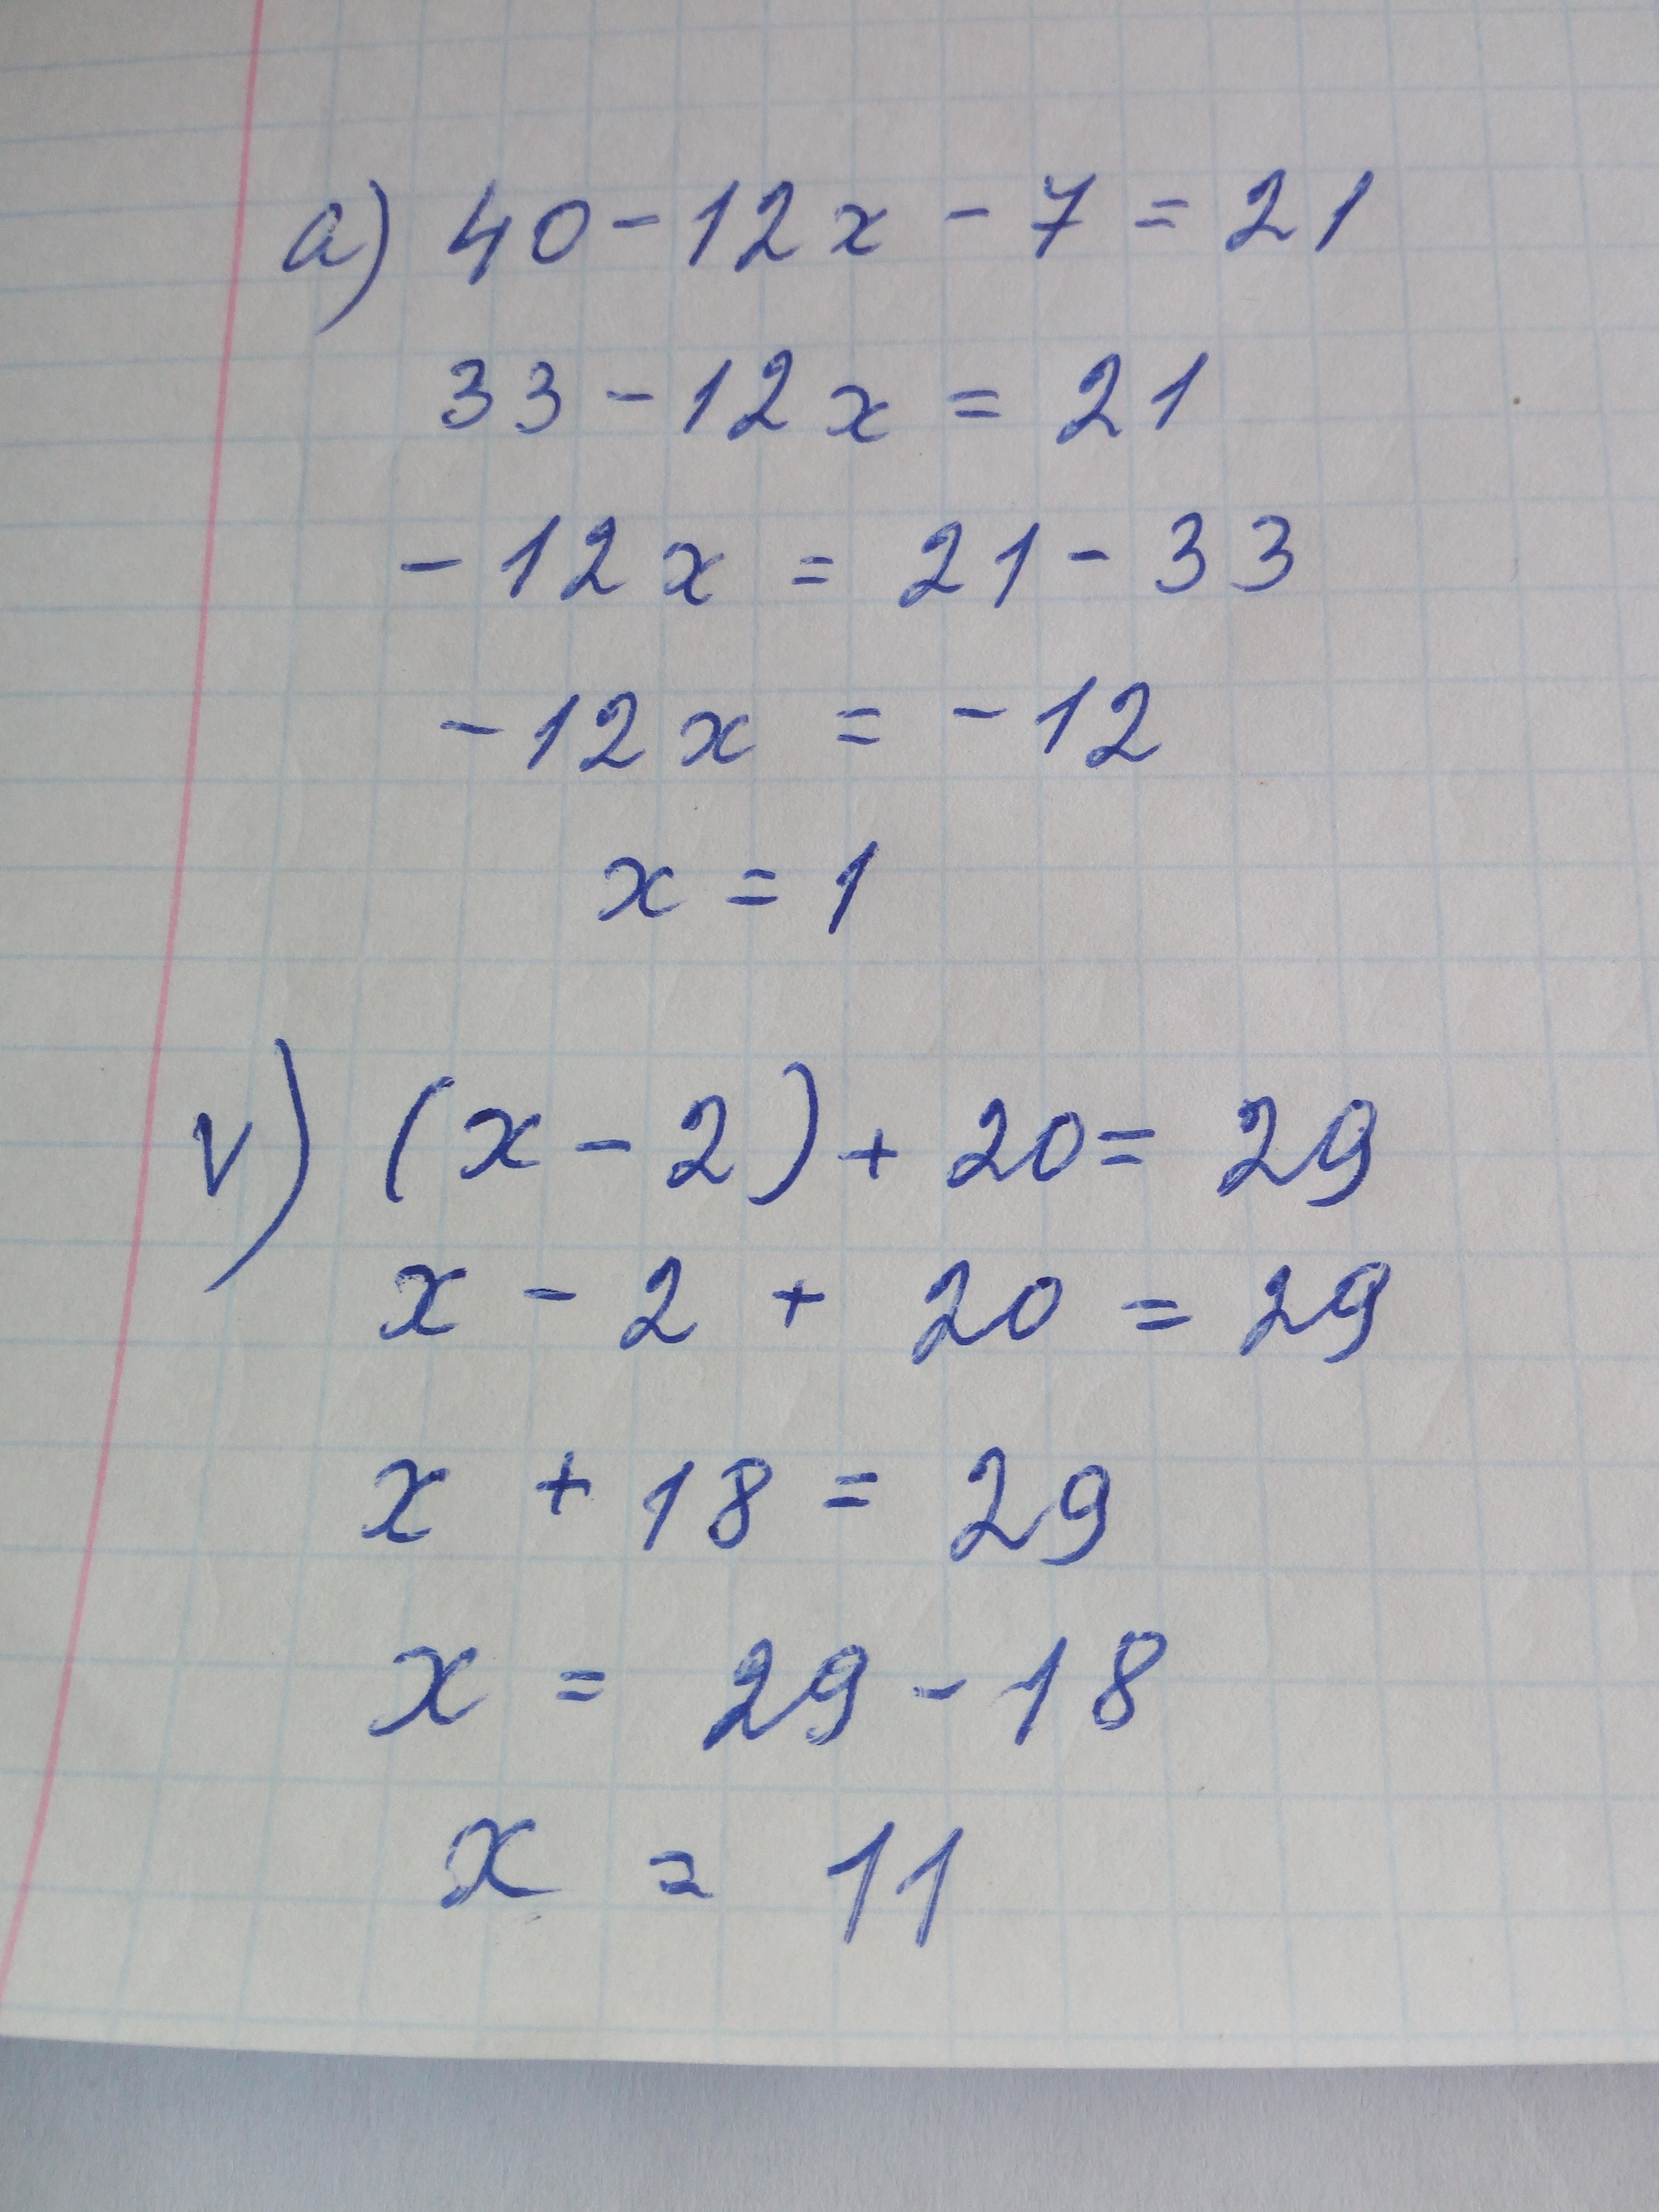 a) 40 - 12x - 7 = 21
33 - 12x = 21
- 12x = 21 - 33
- 12x = - 12
x = 1
v) (x - 2) + 20 = 29
x - 2 + 20 = 29
x + 18 = 29
x = 29 - 18
x = 11